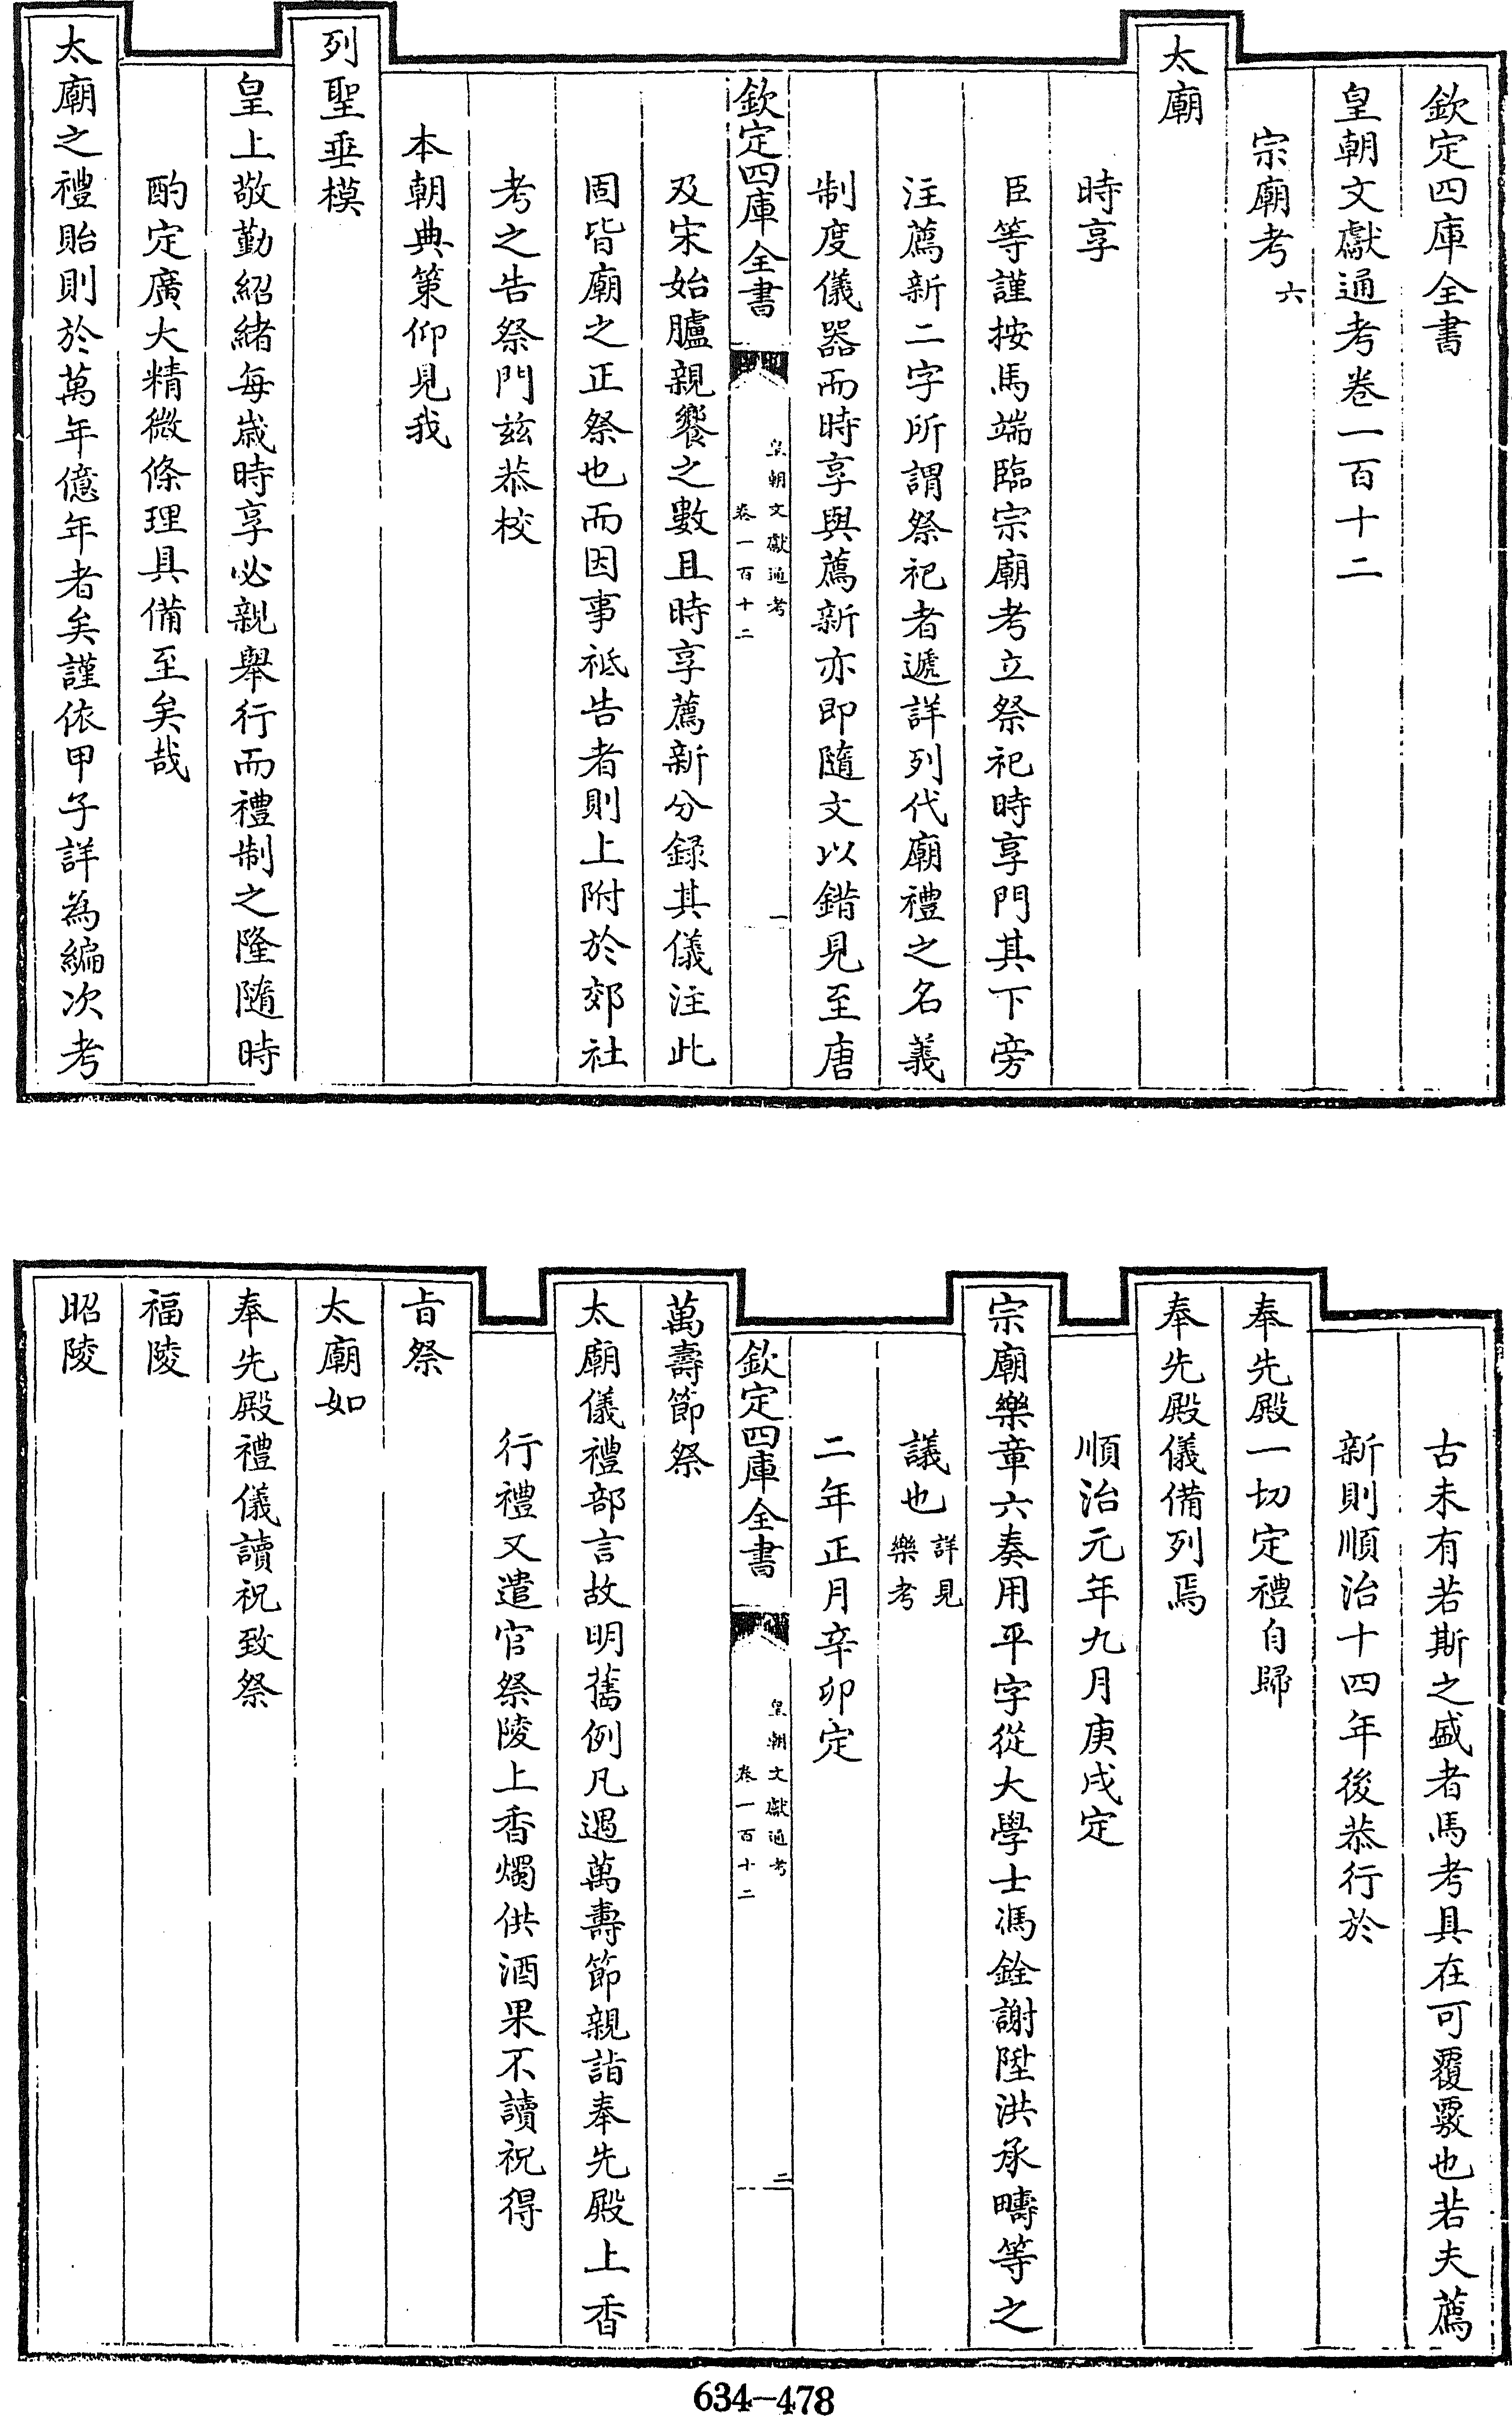 欽定四庫全書
皇朝文獻通考卷一百十二
宗廟考六
太廟
時享
臣等謹按馬端臨宗廟考立祭祀時享門其下旁
注薦新二字所謂祭祀者遞詳列代廟禮之名義
制度儀器而時享與薦新亦即隨文以錯見至唐
欽定四庫全書
皇朝文獻通考
卷一百十二
一
及宋始臚親饗之數且時享薦新分録其儀注此
固皆廟之正祭也而因事祗告者則上附於郊社
考之告祭門兹恭校
本朝典策仰見我
列聖垂模
皇上敬勤紹緒每歲時享必親舉行而禮制之隆隨時
酌定廣大精微條理具備至矣哉
太廟之禮貽則於萬年億年者矣謹依甲子詳為編次考
古未有若斯之盛者馬考具在可覆覈也若夫薦
新則順治十四年後恭行於
奉先殿一切定禮自歸
奉先殿儀備列焉
順治元年九月庚戌定
宗廟樂章六奏用平字從大學士馮銓謝陞洪承疇等之
議也詳見樂考
二年正月辛卯定
欽定四庫全書
皇朝文獻通考
卷一百十二
二
萬壽節祭
太廟儀禮部言故明舊例凡遇萬壽節親詣奉先殿上香
行禮又遣官祭陵上香燭供酒果不讀祝得
旨祭
太廟如
奉先殿禮儀讀祝致祭
福陵
昭陵
634-478